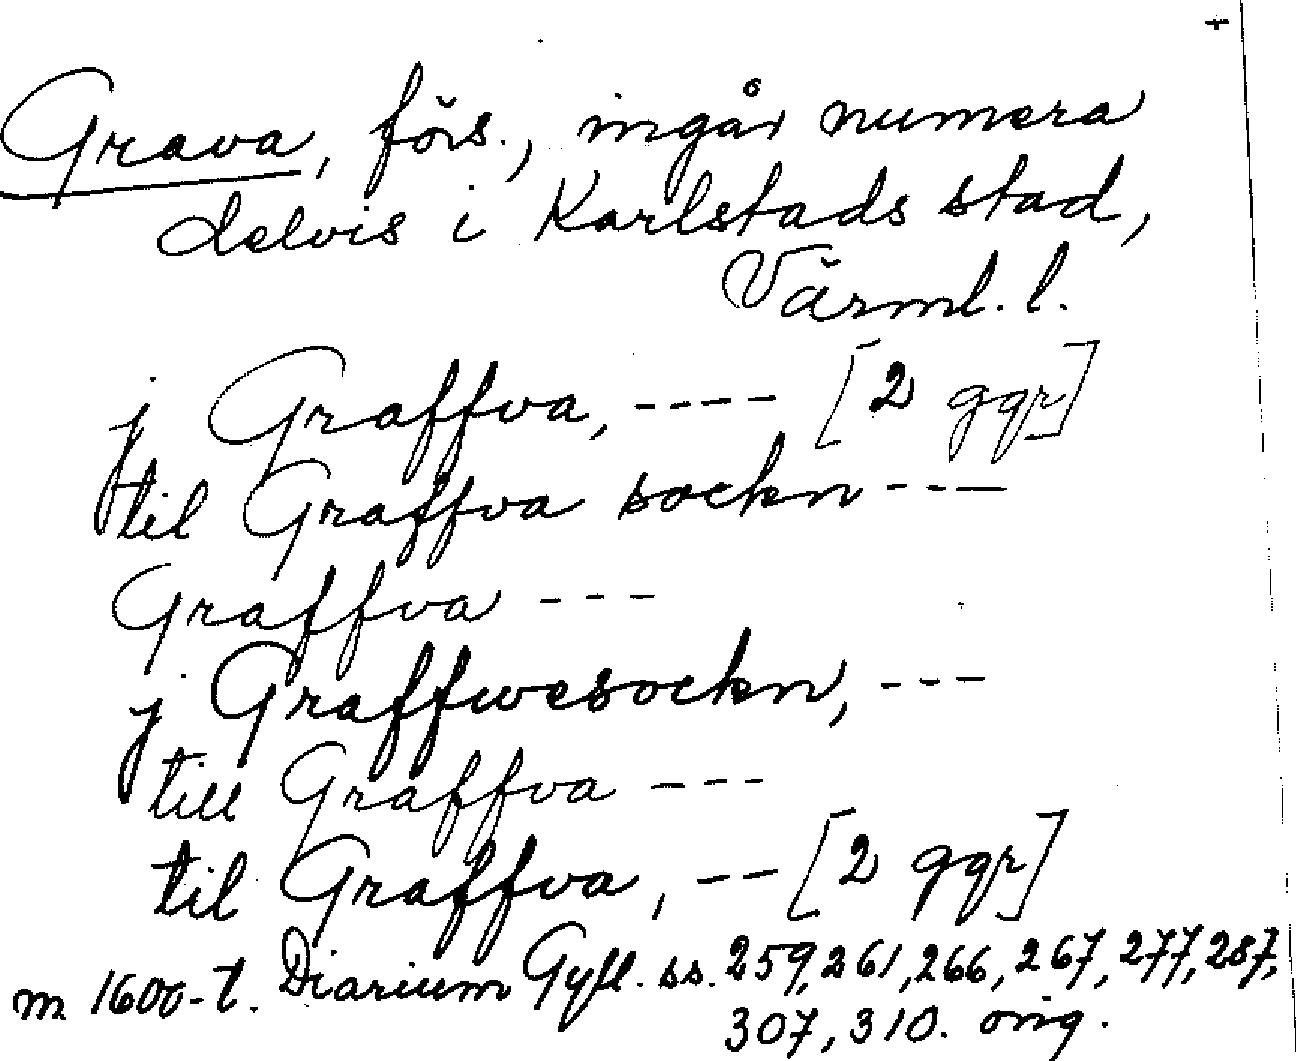 Grava, förs., ingår numera
delvis i Karlstads stad,
Värml. l.
j Graffva, ---- [2 ggr]
til Graffva sockn ---
Graffva ---
j Graffwesockn, ---
till Graffva ---
til Graffva, -- [2 ggr]
m 1600-t. Diarium Gyll. ss. 259, 261, 266, 267, 277, 287,
307, 310. orig.